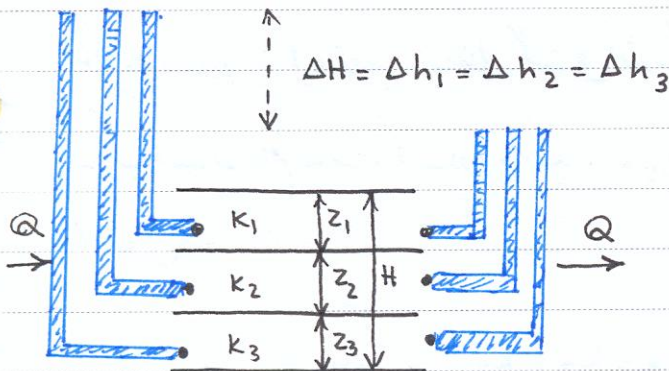 ΔH = Δh₁ = Δh₂ = Δh₃
Q
K₁
Z₁
H
Q
K₂
Z₂
K₃
Z₃